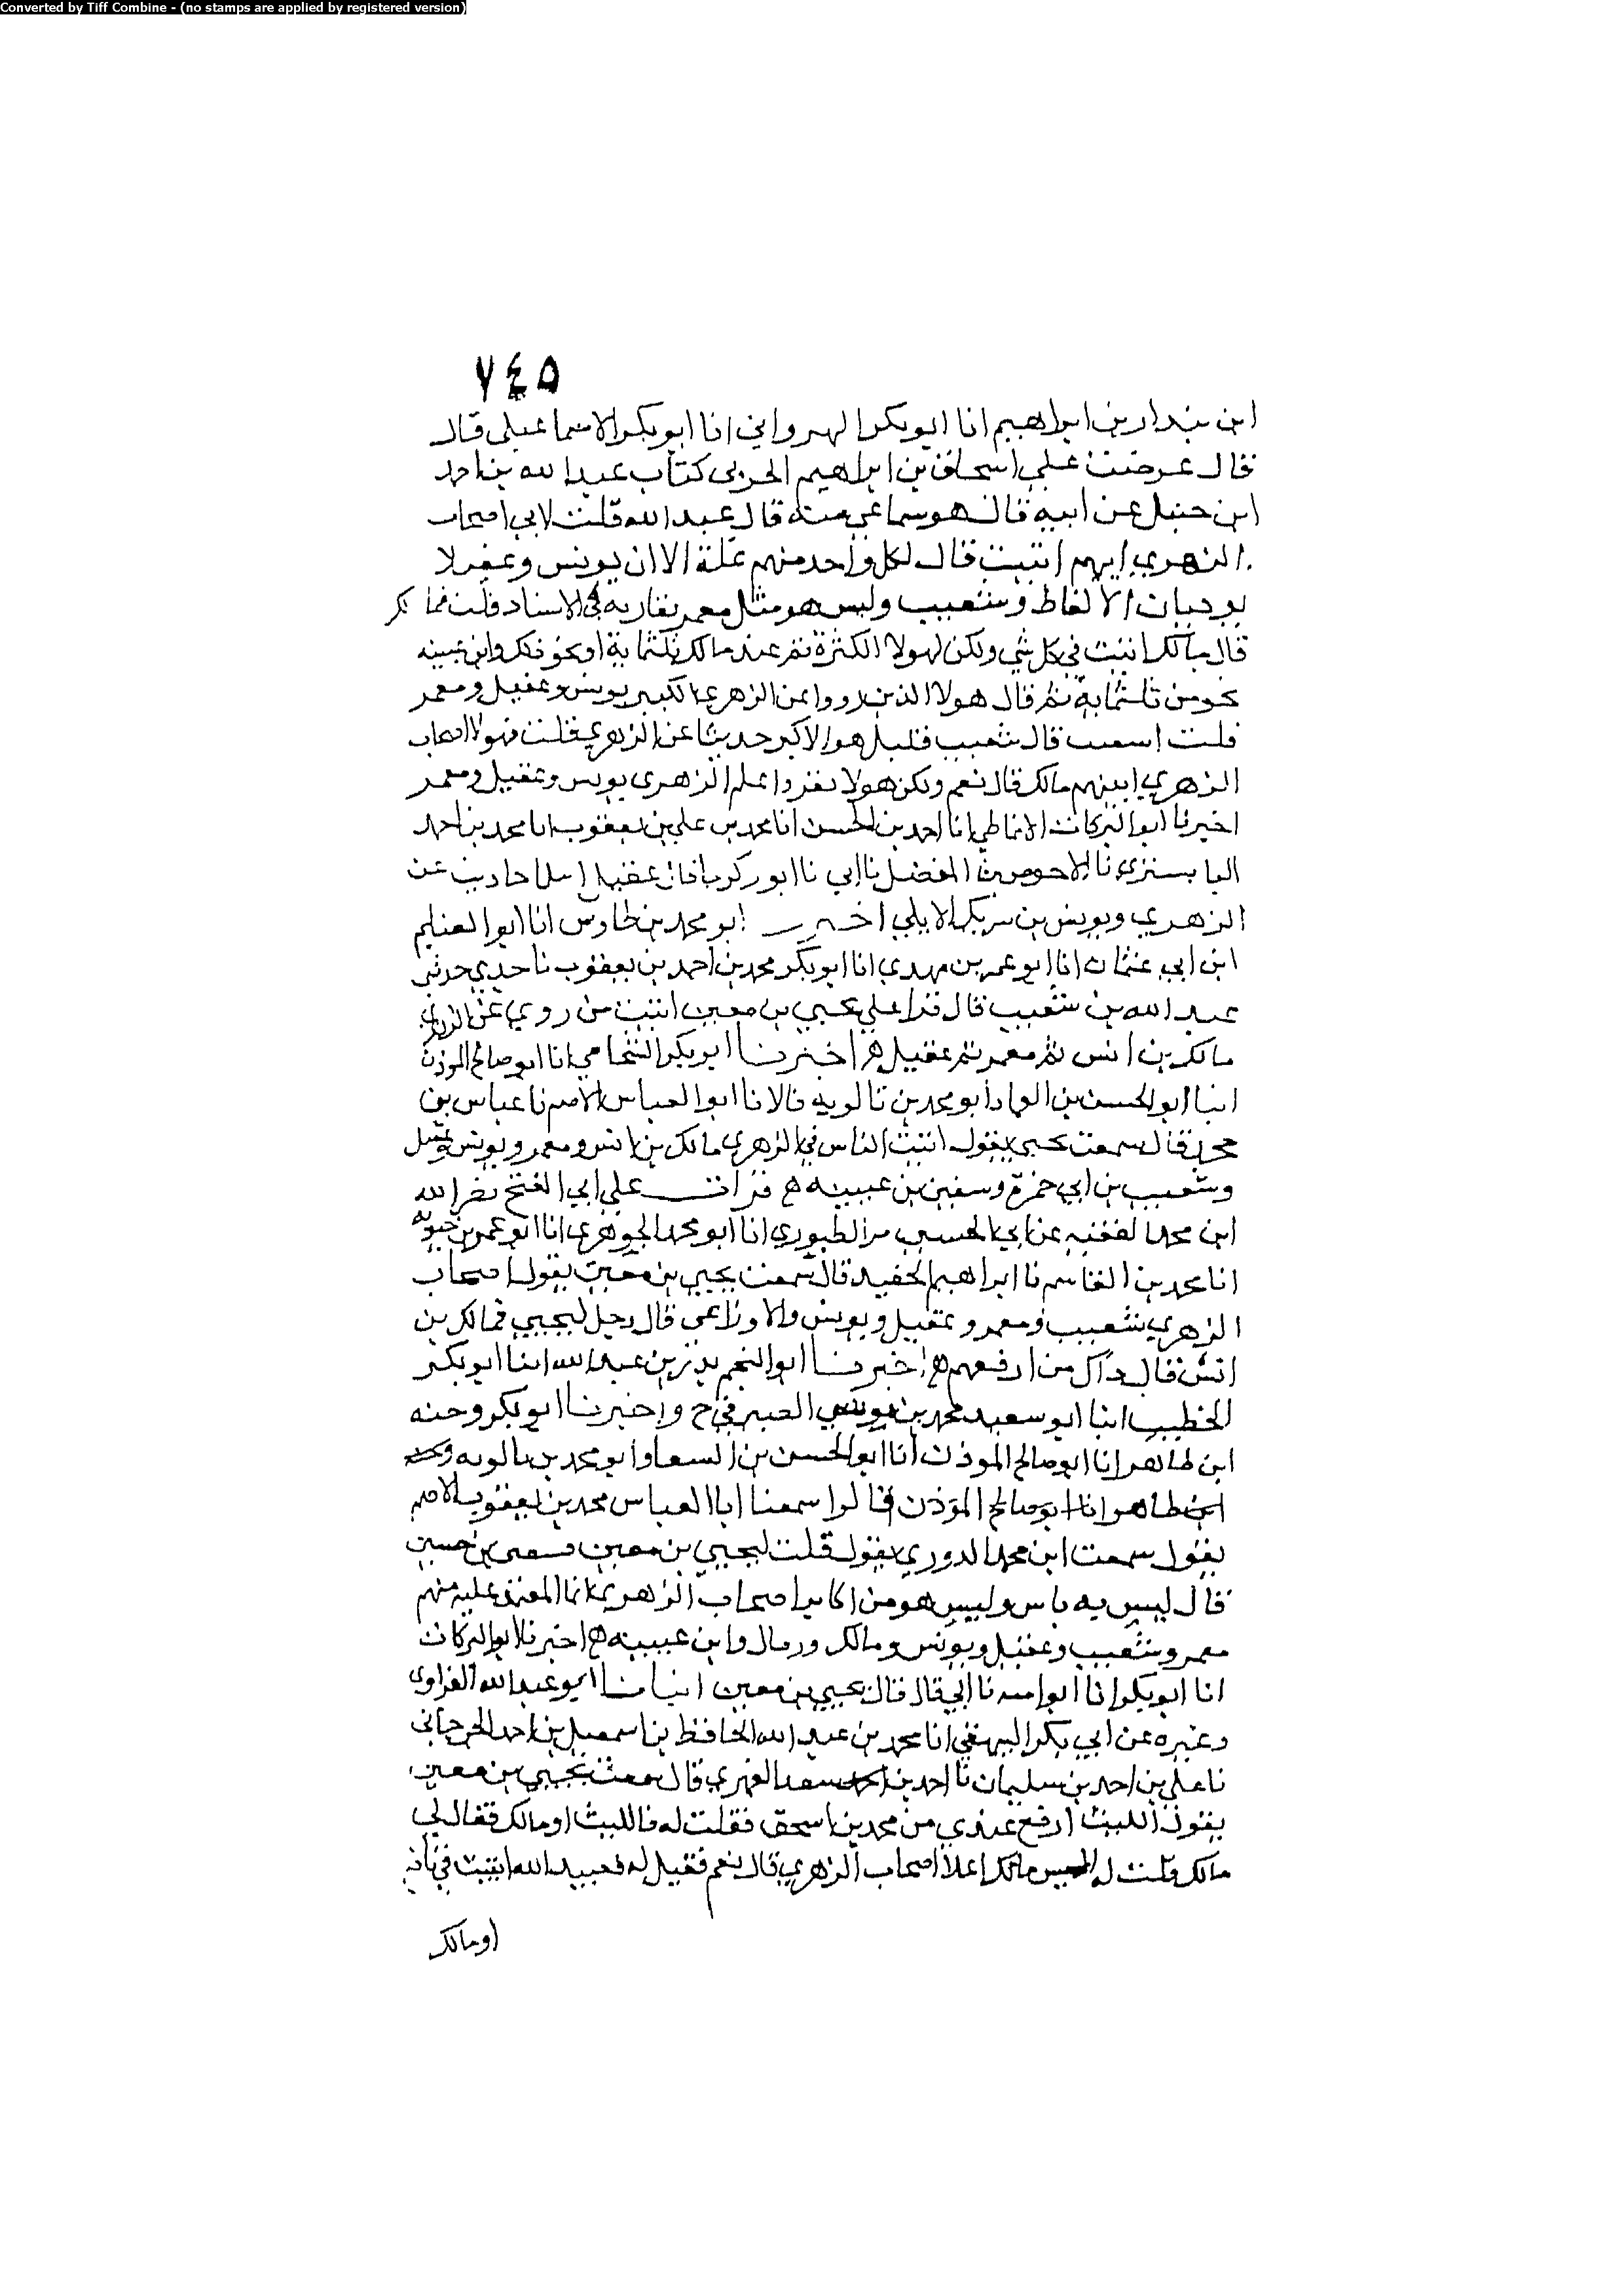 Converted by Tiff Combine - (no stamps are applied by registered version)
٧٤٥
ابن بندار بن ابراهيم انا ابو بكر انا ابو بكر الاسماعيلي قال
قال عرضت على اسحاق بن ابراهيم الحربي كتاب عبد الله بن احمد
ابن حنبل عن ابيه قال هو سماعي منه قال عبد الله قلت لابي اصحاب
الزهري ايهم اثبت قال لكل واحد منهم علة الا ان يونس وعقيلا
يوديان الالفاظ وشعيب وليس هو مثل معمر يقاربه في الاسناد قلت فمالك
قال مالك اثبت في كل شي ولكن لهولا الكثرة ثم عند مالك ثلثماية او نحو ذلك وابن عيينه
نحو من ثلثماية ثم قال هولا الذين رووا عن الزهري الكبير يونس وعقيل ومعمر
قلت شعيب قال شعيب قليل هولا اكبر حديثا عن الزهري قلت فهولا اصحاب
الزهري اثبتهم مالك قال نعم ولكن هولا علم الزهري يونس وعقيل ومعمر
اخبرنا ابو البركات الانماطي انا احمد بن الحسن انا محمد بن علي بن يعقوب انا محمد بن احمد
البابسيري نا الاحوص بن المفضل نا ابي نا ابو زكريا قال عقيل احاديث عن
الزهري ويونس بن يزيد الايلي اخبرنا ابو محمد بن طاوس انا ابو الغنايم
ابن ابي عثمان انا ابو عمر بن مهدي انا ابو بكر محمد بن احمد بن يعقوب نا جدي حدثني
عبد الله بن شعيب قال قرا علي يحيى بن معين اثبت من روي عن الزهري
مالك بن انس ثم معمر ثم عقيل ه اخبرنا ابو بكر الشحامي انا ابو صالح الموذن
انبا ابو الحسن بن وابو محمد بن بالويه قالا نا ابو العباس الاصم نا عباس بن
محمد قال سمعت يحيى يقول اثبت الناس في الزهري مالك بن انس ومعمر ويونس وعقيل
وشعيب بن ابي حمزة وسفين بن عيينه ه قرات على ابي الفتح نصر الله
ابن محمد الفقيه عن ابي الحسين الطيوري انا ابو محمد الجوهري انا ابو عمر بن حيويه
انا محمد بن القاسم نا ابراهيم بن الجنيد قال سمعت يحيى بن معين يقول اصحاب
الزهري شعيب ومعمر وعقيل ويونس والاوزاعي قال رجل ليحيى فمالك بن
انس قال ذاك من ارفعهم ه اخبرنا ابو النجم بدر بن عبد الله انبا ابو بكر
الخطيب انبا ابو سعيد محمد بن موسى الصيرفي ح واخبرنا ابو بكر وجيه
ابن طاهر انا ابو صالح الموذن انا ابو الحسن بن السقا وابو محمد بن بالويه
ابن طاهر انا ابو صالح الموذن قالوا سمعنا ابا العباس محمد بن يعقوب الاصم
يقول سمعت ابن محمد الدوري يقول قلت ليحيى بن معين فسفين بن حسين
قال ليس به باس وليس هو من اكابر اصحاب الزهري انما المعتمد عليه منهم
معمر وشعيب وعقيل ويونس ومالك وابن عيينه ه اخبرنا ابو البركات
انا ابو بكر انا ابو اميه نا ابي قال قال يحيى بن معين انبانا ابو عبد الله الفراوي
وغيره عن ابي بكر البيهقي انا محمد بن عبد الله الحافظ نا اسمعيل بن احمد الجرجاني
نا علي بن احمد بن سليمان نا احمد بن سعد الفهري قال سمعت يحيى بن معين
يقول الليث ارفع عندي من محمد بن اسحق فقلت له فالليث او مالك فقال لي
مالك قلت له اليس مالك اعلا اصحاب الزهري قال نعم فقيل له فعبيد الله اثبت في نافع
او مالك